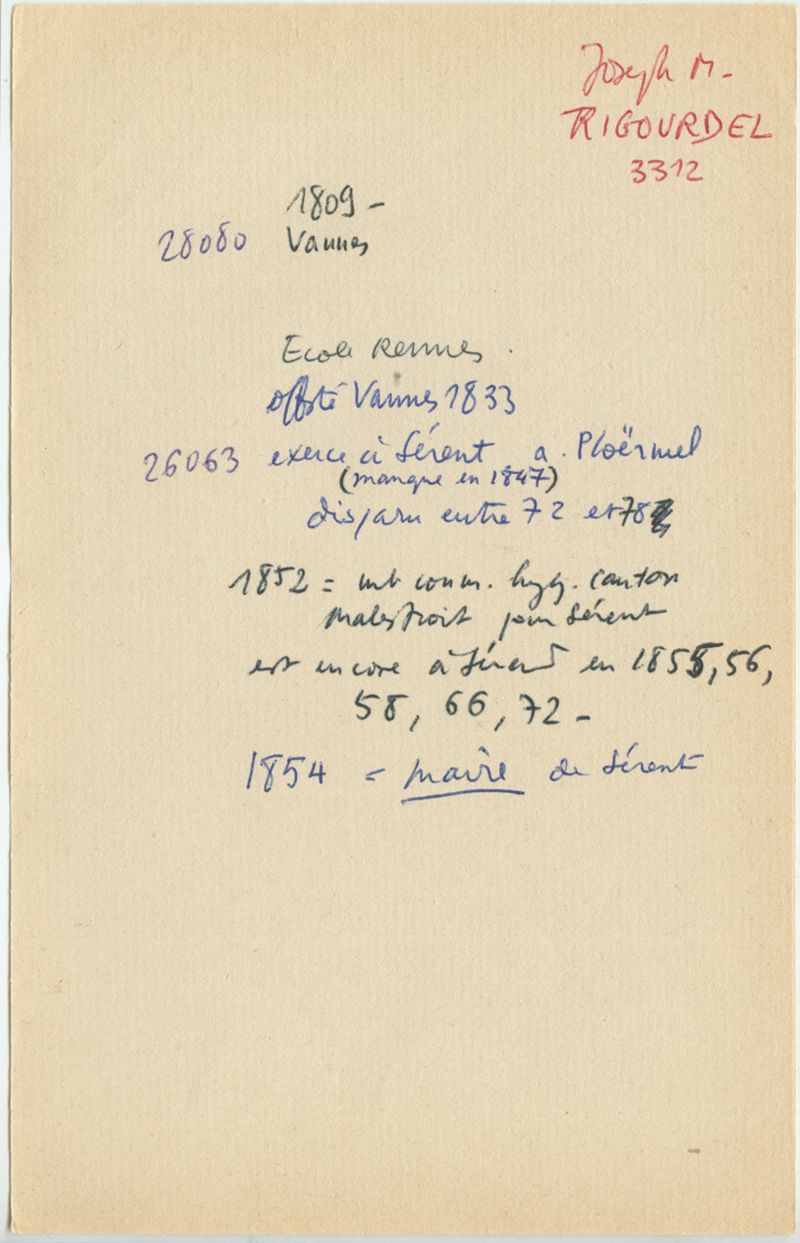 Joseph M.
RIGOURDEL
3312
1809 -
28080 Vannes
Ecole Rennes.
offsté Vannes 1833
26063 exerce à Sérent a. Ploërmel
(manque en 1847)
disparu entre 72 et 78
1852 = mb comm. hyg. canton
Malestroit pour Sérent
est encore à Sérent en 1855, 56,
58, 66, 72 -
1854 = maire de Sérent